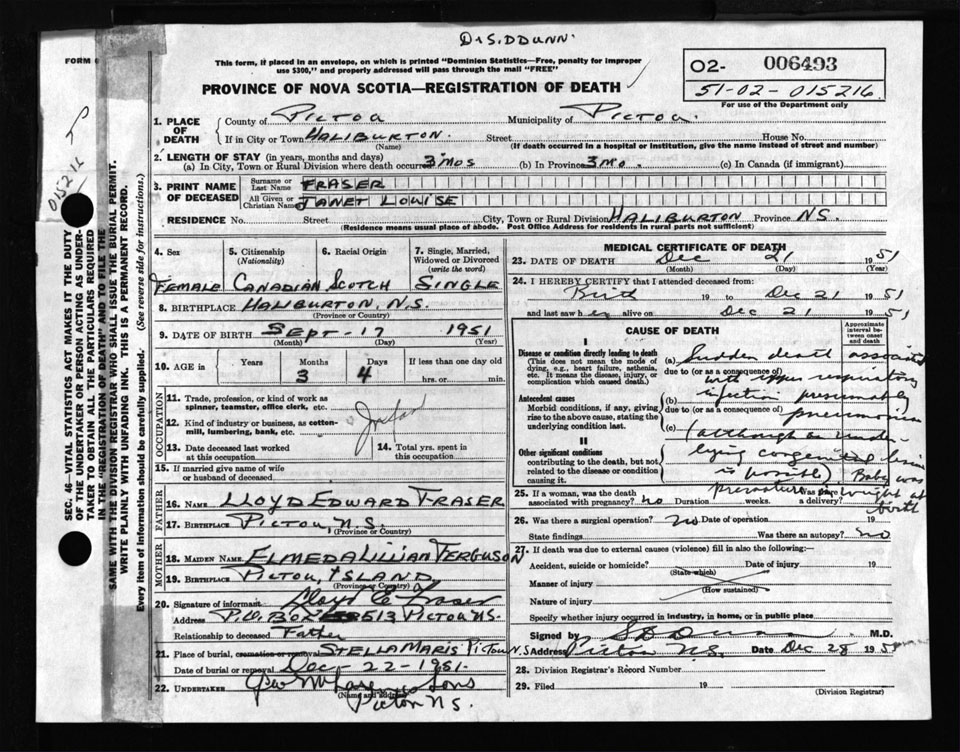 Dr S.D DUNN
FORM
This form, if placed in an envelope, on which is printed "Dominion Statistics—Free, penalty for improper
use $300," and properly addressed will pass through the mail "FREE"
PROVINCE OF NOVA SCOTIA—REGISTRATION OF DEATH
02- 006493
51-02-015216
For use of the Department only
015216
SEC. 46-VITAL STATISTICS ACT MAKES IT THE DUTY
OF THE UNDERTAKER OR PERSON ACTING AS UNDER-
TAKER TO OBTAIN ALL THE PARTICULARS REQUIRED
IN THE "REGISTRATION OF DEATH" AND TO FILE THE
SAME WITH THE DIVISION REGISTRAR WHO SHALL ISSUE THE BURIAL PERMIT.
WRITE PLAINLY WITH UNFADING INK. THIS IS A PERMANENT RECORD.
Every item of information should be carefully supplied. (See reverse side for instructions.)
1. PLACE OF DEATH
County of PICTOU Municipality of PICTOU.
If in City or Town HALIBURTON. Street House No.
(Name) (If death occurred in a hospital or institution, give the name instead of street and number)
2. LENGTH OF STAY (in years, months and days)
(a) In City, Town or Rural Division where death occurred 3 mos (b) In Province 3 mo. (c) In Canada (if immigrant)
3. PRINT NAME OF DECEASED
Surname or Last Name FRASER
All Given or Christian Names JANET LOUISE
RESIDENCE No. Street City, Town or Rural Division HALIBURTON Province N.S.
(Residence means usual place of abode. Post Office Address for residents in rural parts not sufficient)
4. Sex 5. Citizenship (Nationality) 6. Racial Origin 7. Single, Married, Widowed or Divorced (write the word)
FEMALE CANADIAN SCOTCH SINGLE
8. BIRTHPLACE HALIBURTON, N.S.
(Province or Country)
9. DATE OF BIRTH SEPT-17 1951
(Month) (Day) (Year)
10. AGE in Years Months Days If less than one day old
3 4 hrs. or min.
OCCUPATION
11. Trade, profession, or kind of work as
spinner, teamster, office clerk, etc.
12. Kind of industry or business, as cotton-
mill, lumbering, bank, etc.
13. Date deceased last worked
at this occupation
14. Total yrs. spent in
this occupation
15. If married give name of wife
or husband of deceased
FATHER
16. NAME LLOYD EDWARD FRASER
17. BIRTHPLACE PICTOU N.S.
(Province or Country)
MOTHER
18. MAIDEN NAME ELMEDA LILLIAN FERGUSON
19. BIRTHPLACE PICTOU, ISLAND
(Province or Country)
20. Signature of informant Lloyd E Fraser
Address P.O. BOX 513 PICTOU N.S.
Relationship to deceased Father
21. Place of burial, cremation or removal STELLA MARIS PICTOU N.S
Date of burial or removal Dec 22-1951.
22. UNDERTAKER
(Name and address)
Pictou N.S.
MEDICAL CERTIFICATE OF DEATH
23. DATE OF DEATH Dec 21 1951
(Month) (Day) (Year)
24. I HEREBY CERTIFY that I attended deceased from:
Birth 19 to Dec 21 1951
and last saw her alive on Dec 21 1951
CAUSE OF DEATH
Approximate interval between onset and death
I
Disease or condition directly leading to death
(This does not mean the mode of
dying, e.g., heart failure, asthenia,
etc. It means the disease, injury, or
complication which caused death.)
(a) Sudden death associated
due to (or as a consequence of)
with upper respiratory
Antecedent causes
Morbid conditions, if any, giving
rise to the above cause, stating the
underlying condition last.
(b) infection presumably
due to (or as a consequence of)
pneumonia
(c) (although an under-
II
Other significant conditions
contributing to the death, but not
related to the disease or condition
causing it.
lying congenital lesion
is possible) Baby was
premature in weight at
birth
25. If a woman, was the death
associated with pregnancy? no Duration weeks. Was there a delivery?
26. Was there a surgical operation? no Date of operation 19
State findings Was there an autopsy? no
27. If death was due to external causes (violence) fill in also the following:—
Accident, suicide or homicide? Date of injury 19
(State which)
Manner of injury
(How sustained)
Nature of injury
Specify whether injury occurred in industry, in home, or in public place
Signed by S D Dunn M.D.
Address Pictou N.S. Date Dec 28 1951
28. Division Registrar's Record Number
29. Filed 19
(Division Registrar)